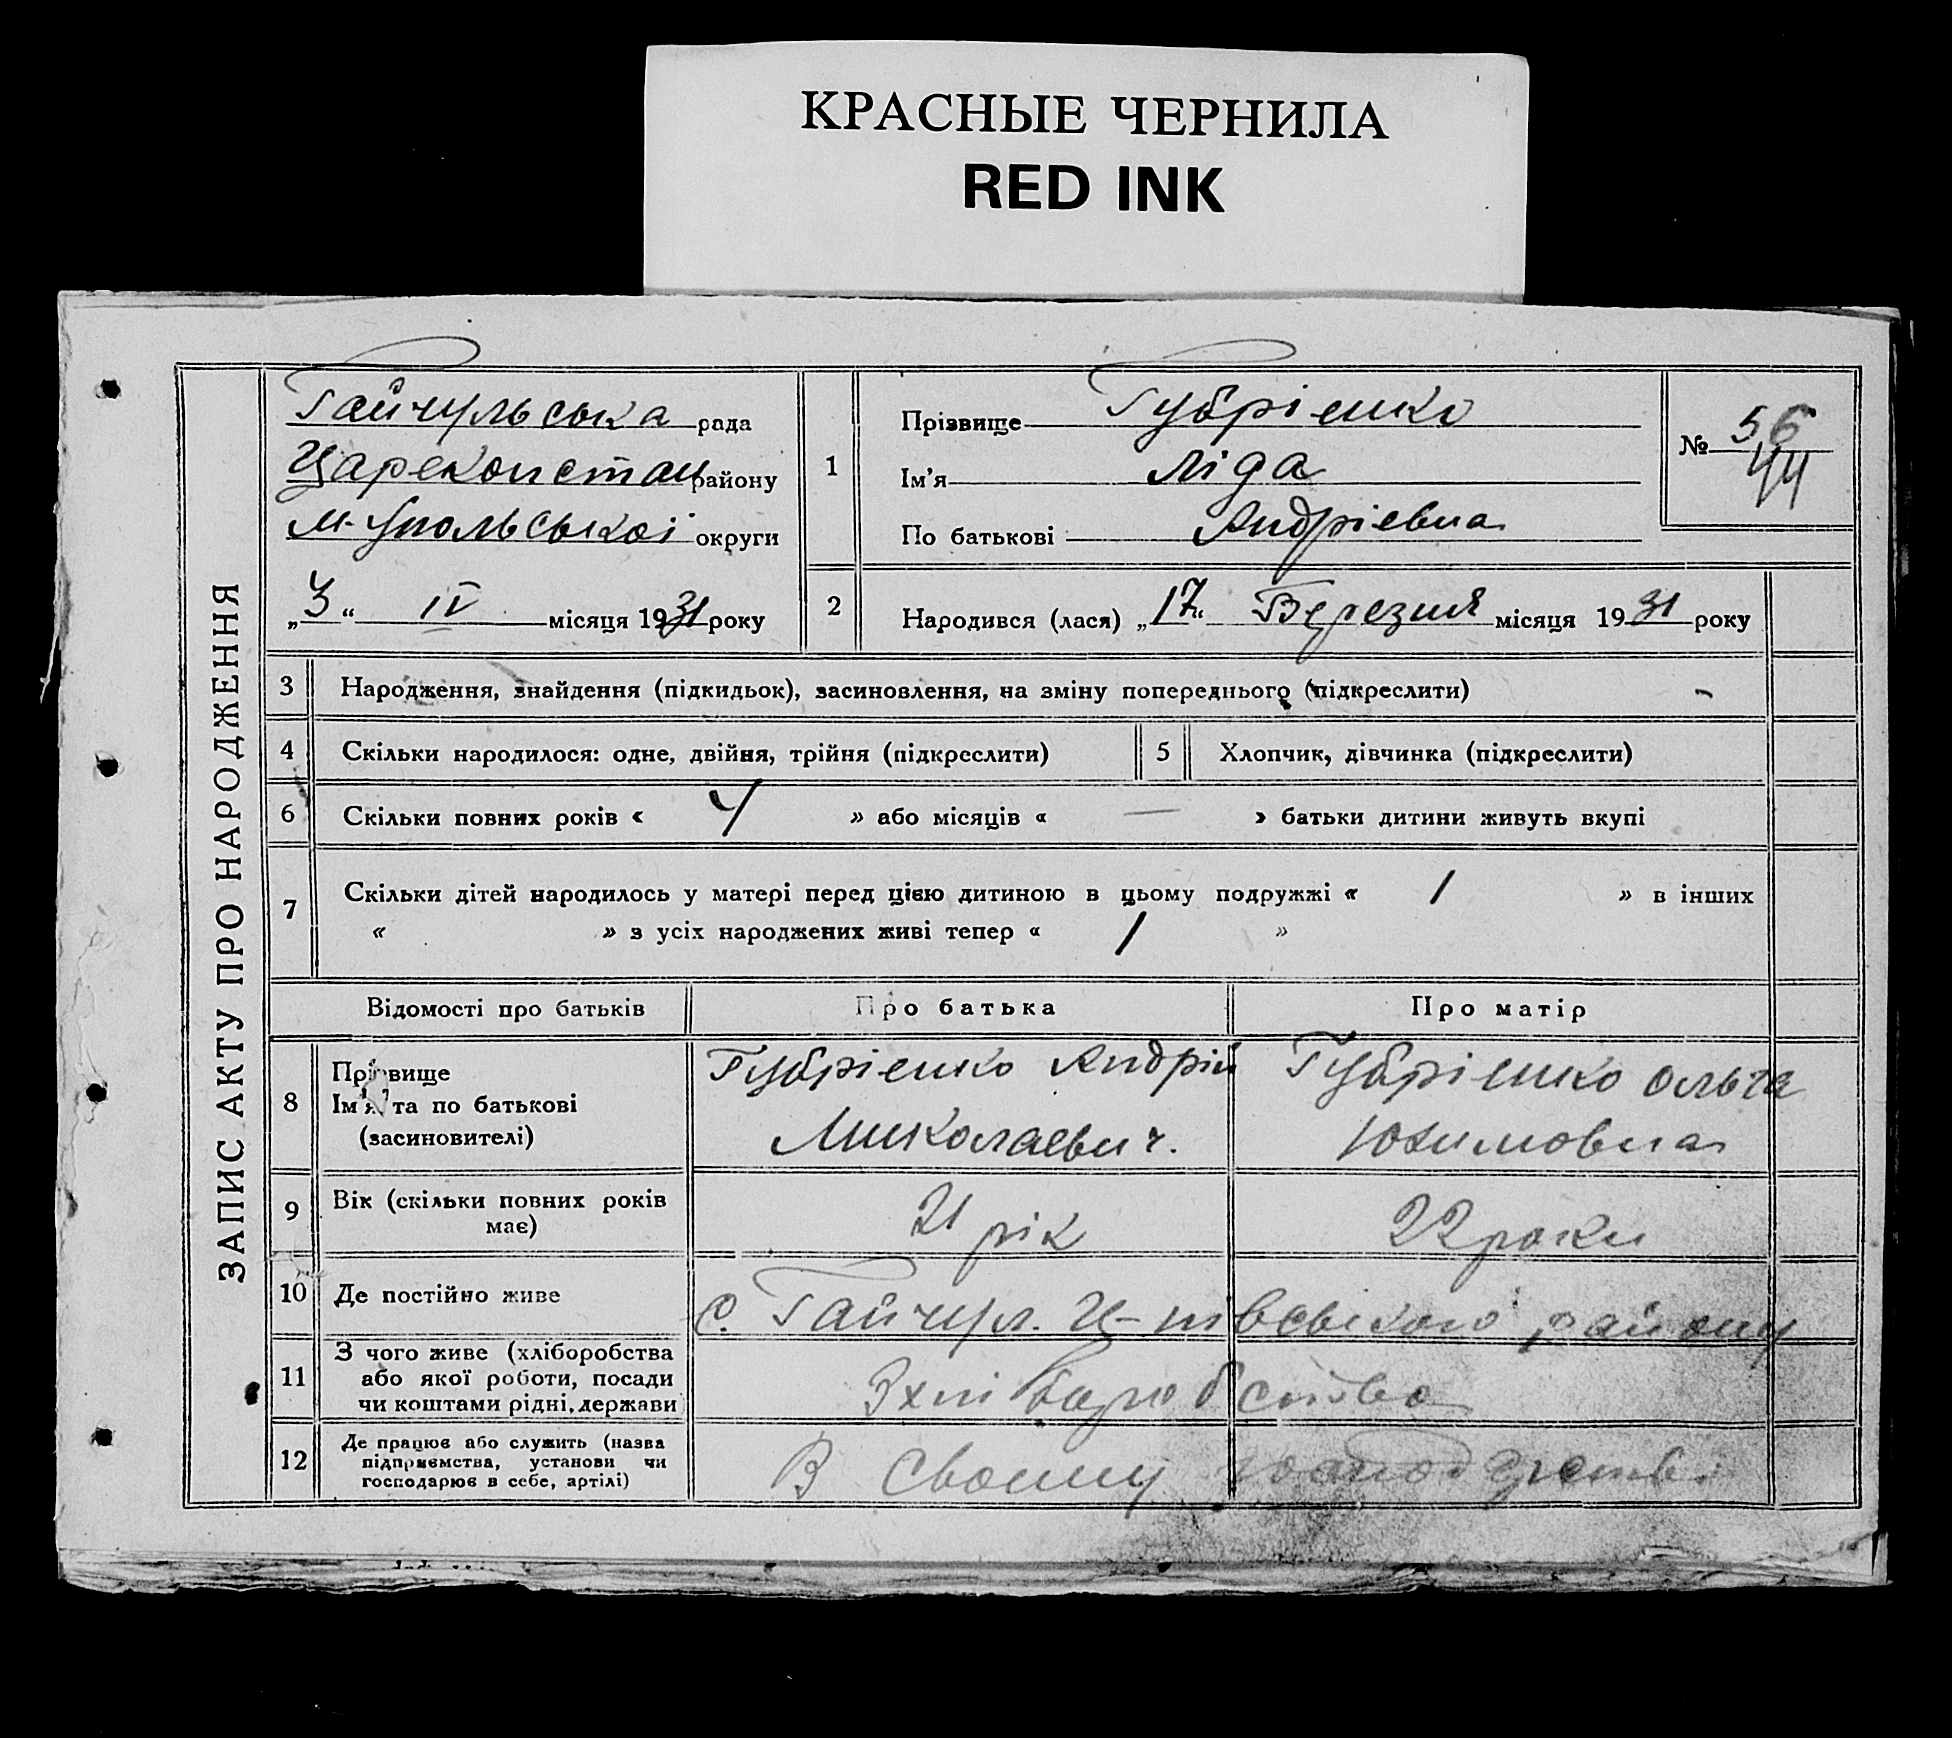 КРАСНЫЕ ЧЕРНИЛА
RED INK
ЗАПИС АКТУ ПРО НАРОДЖЕННЯ
Гайчульська рада
Царекопстан району
М-Упольської округи
„3“ IV місяця 1931 року
1
Прізвище Губріенко
Ім'я Ліда
По батькові Андріевна
№ 56
44
2
Народився (лася) „17“ Березня місяця 1931 року
3 Народження, знайдення (підкидьок), засиновлення, на зміну попереднього (підкреслити) -
4 Скільки народилося: одне, двійня, трійня (підкреслити) 5 Хлопчик, дівчинка (підкреслити)
6 Скільки повних років « 4 » або місяців « — » батьки дитини живуть вкупі
7 Скільки дітей народилось у матері перед цією дитиною в цьому подружжі « 1 » в інших
« » з усіх народжених живі тепер « 1 »
Відомості про батьків Про батька Про матір
8 Прізвище
Ім'я та по батькові
(засиновителі)
Губріенко Андрій
Миколаевич.
Губріенко Ольга
Юхимовна
9 Вік (скільки повних років
має)
21 рік
22 роки
10 Де постійно живе с. Гайчул. Ц-
району
11 З чого живе (хліборобства
або якої роботи, посади
чи коштами рідні, держави
З хліборобства
12 Де працює або служить (назва
підприємства, установи чи
господарює в себе, артілі)
В своему господарстві